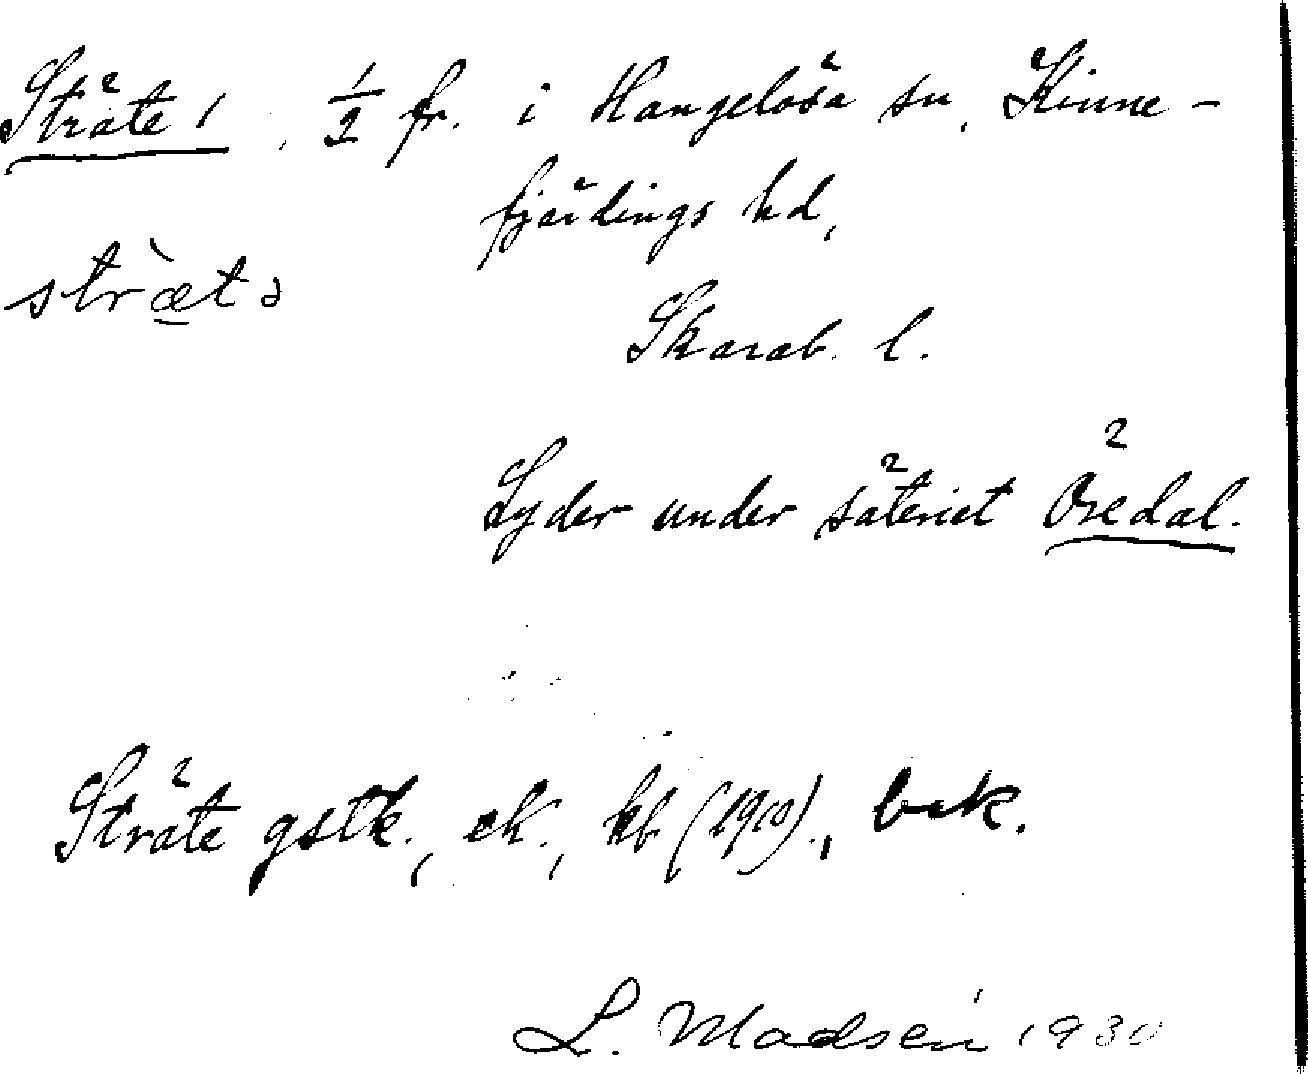 Sträte 1, 1/2 fr. i Hangelösa sn, Kinne-
fjärdings hd,
stræ̀tə
Skarab. l.
Lyder under säteriet Öredal.
Sträte gstk., ek., kb (1910)., bek.
L. Madsén 1930